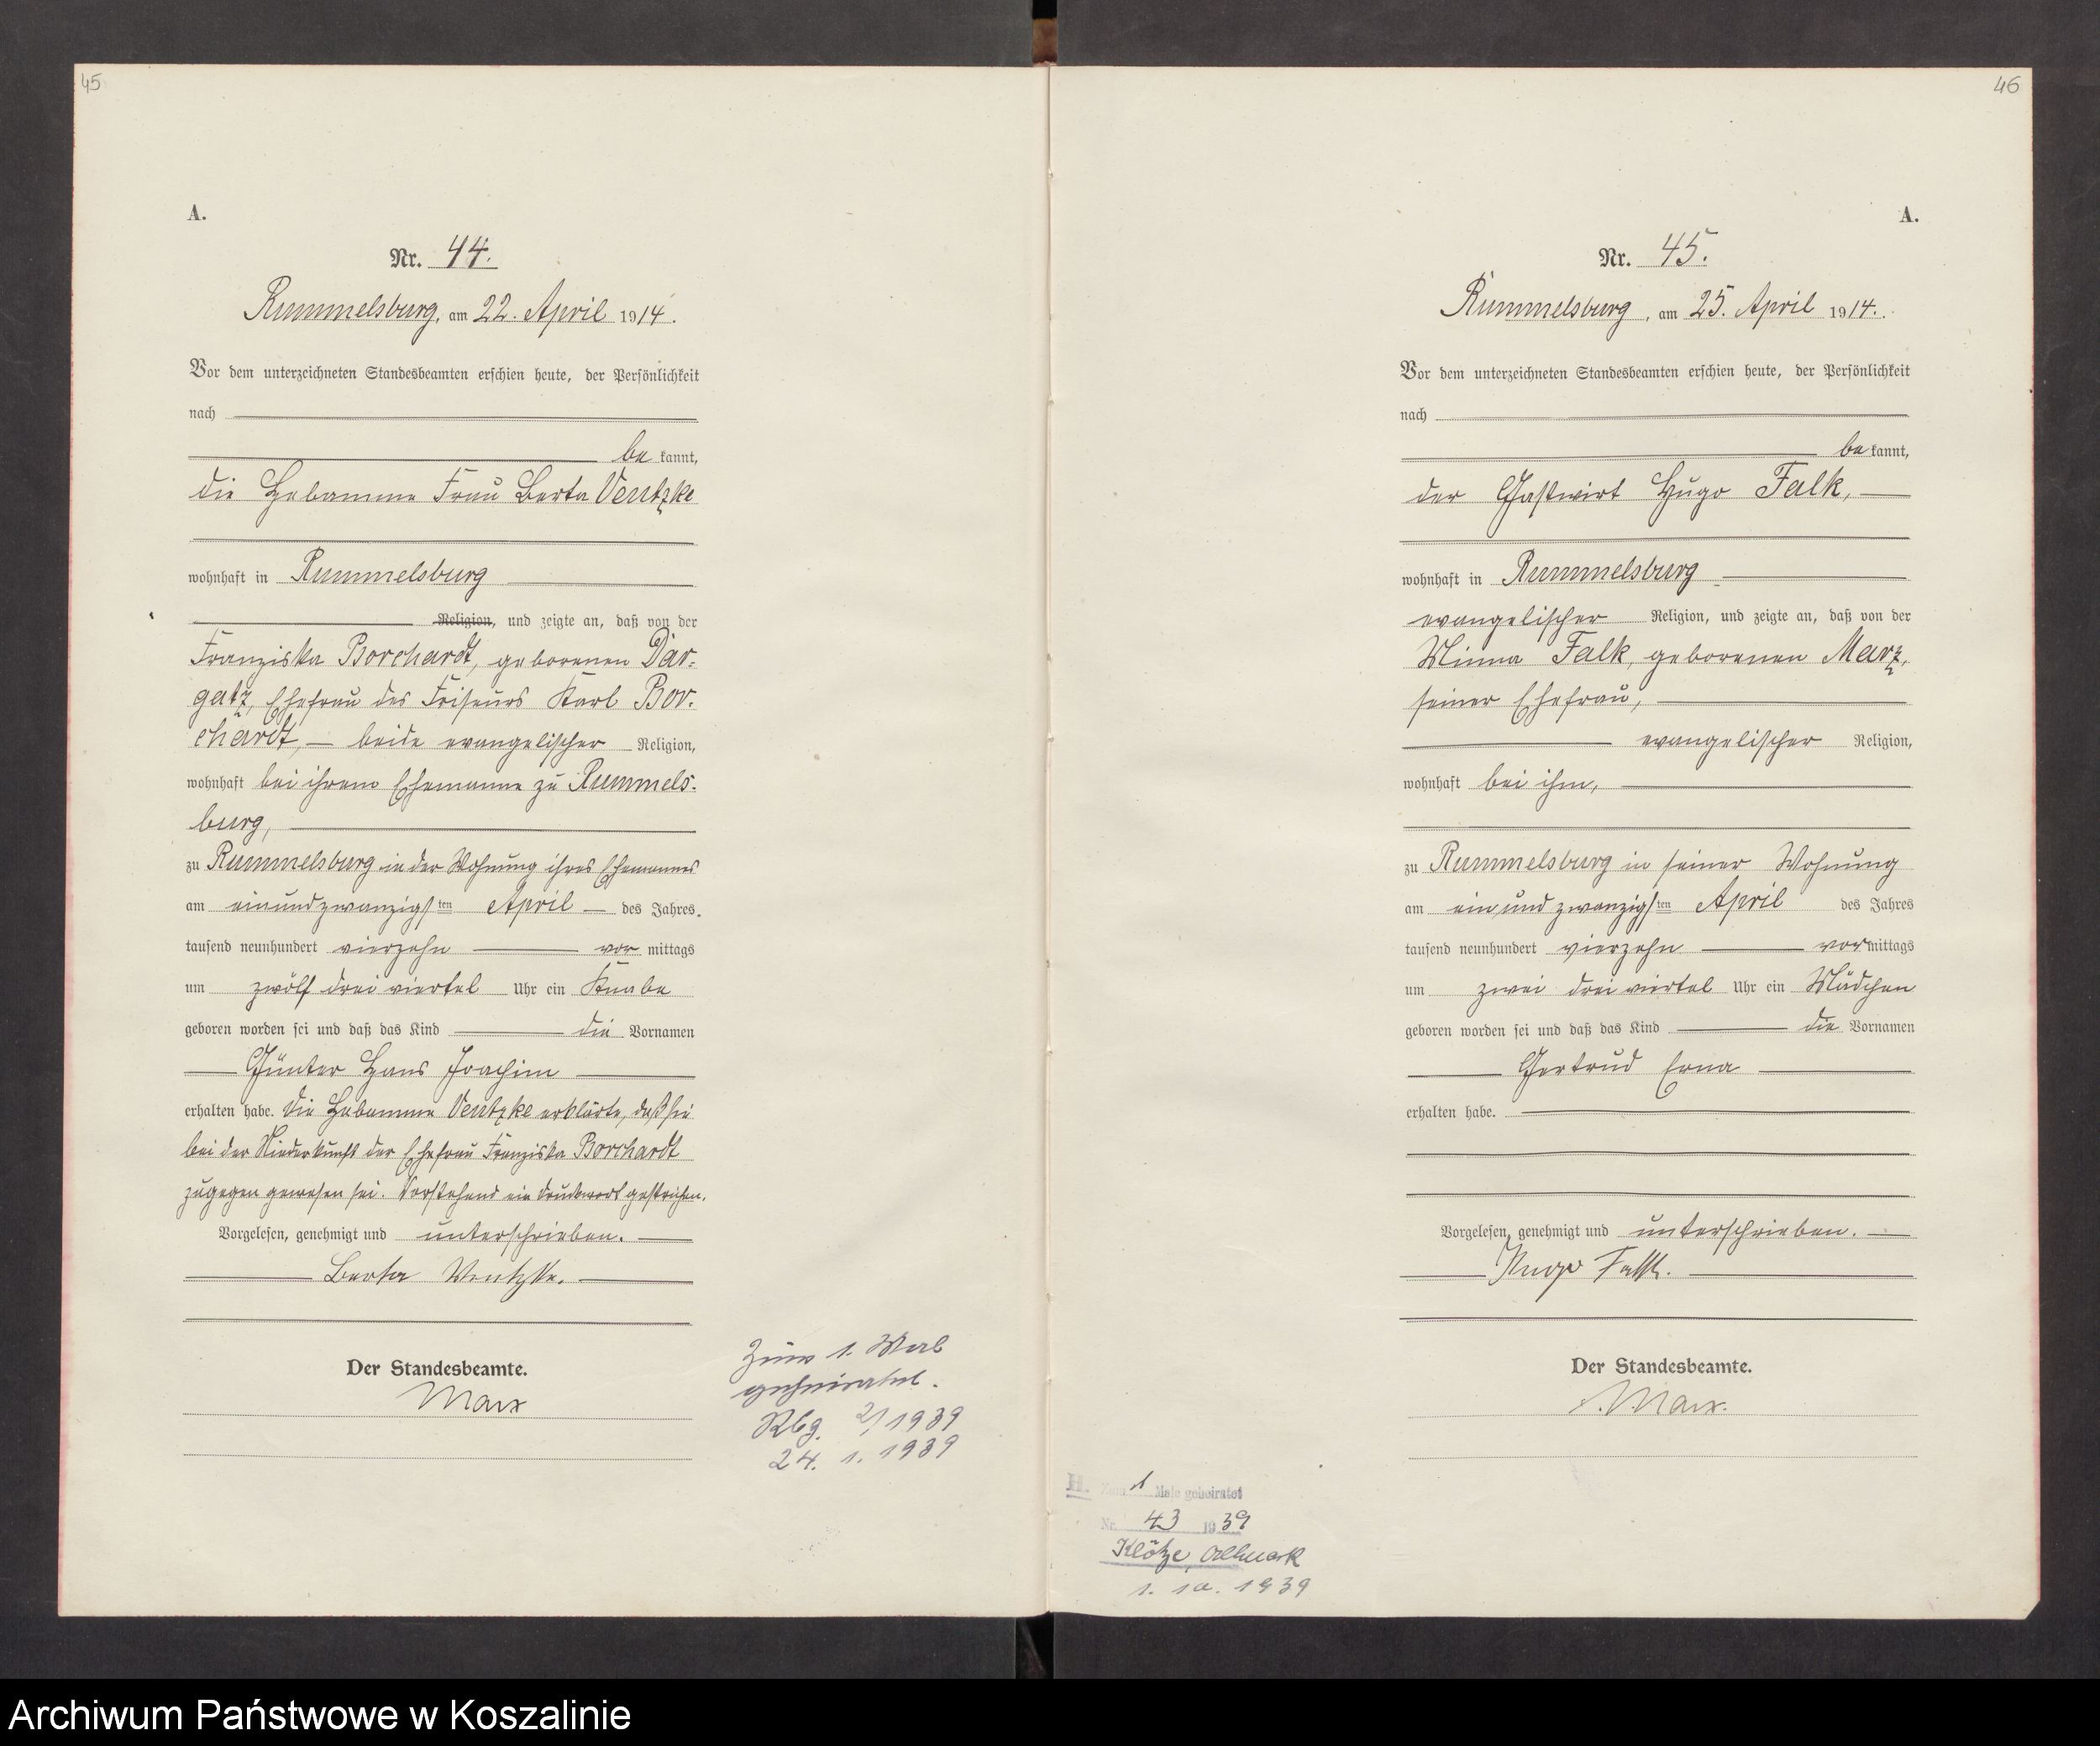 45
A.
Nr. 44.
Rummelsburg, am 22. April 1914.
Vor dem unterzeichneten Standesbeamten erschien heute, der Persönlichkeit
nach
be kannt,
die Hebamme Frau Berta Ventzke
wohnhaft in Rummelsburg
Religion, und zeigte an, daß von der
Franziska Borchardt, geborenen Dar-
gatz, Ehefrau des Friseurs Karl Bor-
chardt, — beide evangelischer Religion,
wohnhaft bei ihrem Ehemanne zu Rummels-
burg,
zu Rummelsburg in der Wohnung ihres Ehemannes
am einundzwanzigsten April — des Jahres
tausend neunhundert vierzehn vor mittags
um zwölf drei viertel Uhr ein Knabe
geboren worden sei und daß das Kind die Vornamen
Günter Hans Joachim
erhalten habe. Die Hebamme Ventzke erklärte, daß sie
bei der Niederkunft der Ehefrau Franziska Borchardt
zugegen gewesen sei. Vorstehend ein Druckwort gestrichen.
Vorgelesen, genehmigt und unterschrieben.
Berta Ventzke.
Der Standesbeamte.
Marx
Zum 1. Mal
geheiratet.
Rbg. 2/1939
24. 1. 1939
46
A.
Nr. 45.
Rummelsburg, am 25. April 1914.
Vor dem unterzeichneten Standesbeamten erschien heute, der Persönlichkeit
nach
be kannt,
der Gastwirt Hugo Falk,
wohnhaft in Rummelsburg
evangelischer Religion, und zeigte an, daß von der
Minna Falk, geborenen Marz,
seiner Ehefrau,
evangelischer Religion,
wohnhaft bei ihm,
zu Rummelsburg in seiner Wohnung
am ein und zwanzigsten April des Jahres
tausend neunhundert vierzehn vor mittags
um zwei drei viertel Uhr ein Mädchen
geboren worden sei und daß das Kind die Vornamen
Gertrud Erna
erhalten habe.
Vorgelesen, genehmigt und unterschrieben.
Hugo Falk.
Der Standesbeamte.
Marx.
H. Zum 1 Male geheiratet
Nr. 43 1939
Klötze, Altmark
1. 10. 1939
Archiwum Państwowe w Koszalinie